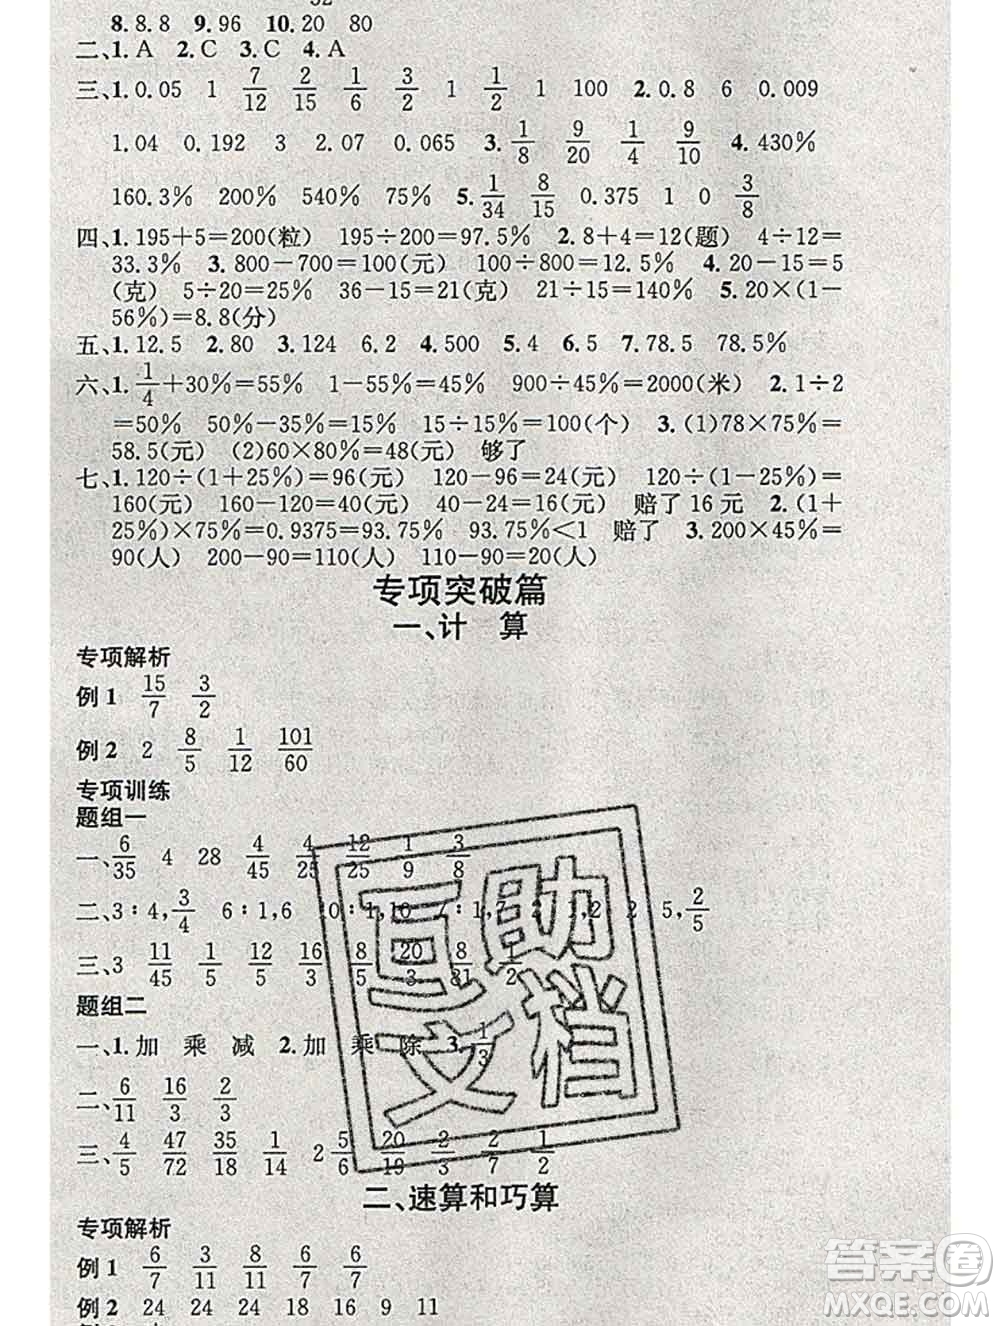 32
8. 8.8 9. 96 10. 20 80
二、1. A 2. C 3. C 4. A
三、1. 0.05 1 7/12 2/15 1/6 3/2 1 1/2 1 100 2. 0.8 6 0.009
1.04 0.192 3 2.07 0.065 3. 1/8 9/20 1/4 9/10 4. 430%
160.3% 200% 540% 75% 5. 1/34 8/15 0.375 1 0 3/8
四、1. 195+5=200(粒) 195÷200=97.5% 2. 8+4=12(题) 4÷12=
33.3% 3. 800-700=100(元) 100÷800=12.5% 4. 20-15=5
(克) 5÷20=25% 36-15=21(克) 21÷15=140% 5. 20×(1-
56%)=8.8(分)
五、1. 12.5 2. 80 3. 124 6.2 4. 500 5. 4 6. 5 7. 78.5 78.5%
六、1. 1/4+30%=55% 1-55%=45% 900÷45%=2000(米) 2. 1÷2
=50% 50%-35%=15% 15÷15%=100(个) 3. (1)78×75%=
58.5(元) (2)60×80%=48(元) 够了
七、1. 120÷(1+25%)=96(元) 120-96=24(元) 120÷(1-25%)=
160(元) 160-120=40(元) 40-24=16(元) 赔了 16 元 2. (1+
25%)×75%=0.9375=93.75% 93.75%<1 赔了 3. 200×45%=
90(人) 200-90=110(人) 110-90=20(人)
专项突破篇
一、计 算
专项解析
例 1 15/7 3/2
例 2 2 8/5 1/12 101/60
专项训练
题组一
一、6/35 4 28 4/45 4/25 12/25 1/9 3/8
二、3∶4,3/4 6∶1,6 10∶1,10 7∶1,7 2∶1,2 2∶5,2/5
三、3 11/45 1/5 100/121 16/5 8/5 20/3 8/81 1/2
题组二
一、1. 加 乘 减 2. 加 乘 除 3. 1/3
二、6/11 16/3 2/3
三、4/5 47/72 35/18 1/14 2 5/6 20/19 2/3 2/7 1/2
二、速算和巧算
专项解析
例 1 6/7 3/11 8/11 6/7 6/7
例 2 24 24 24 18 16 9 11
互助文档
答案圈
MXQE.COM